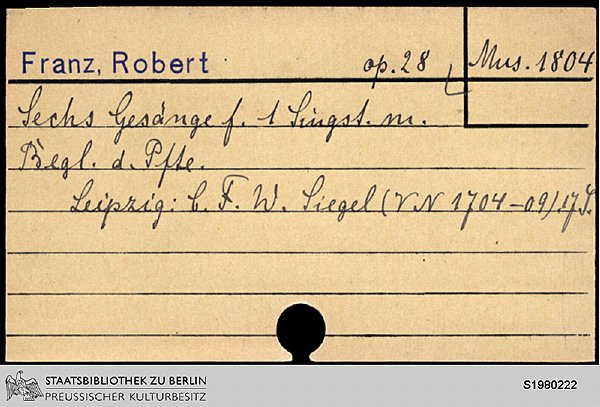 Franz, Robert op. 28 Mus. 1804
Sechs Gesänge f. 1 Singst. m.
Begl. d. Pfte.
Leipzig: C. F. W. Siegel (VN 1704-09) 17 S.
STAATSBIBLIOTHEK ZU BERLIN
PREUSSISCHER KULTURBESITZ
S1980222